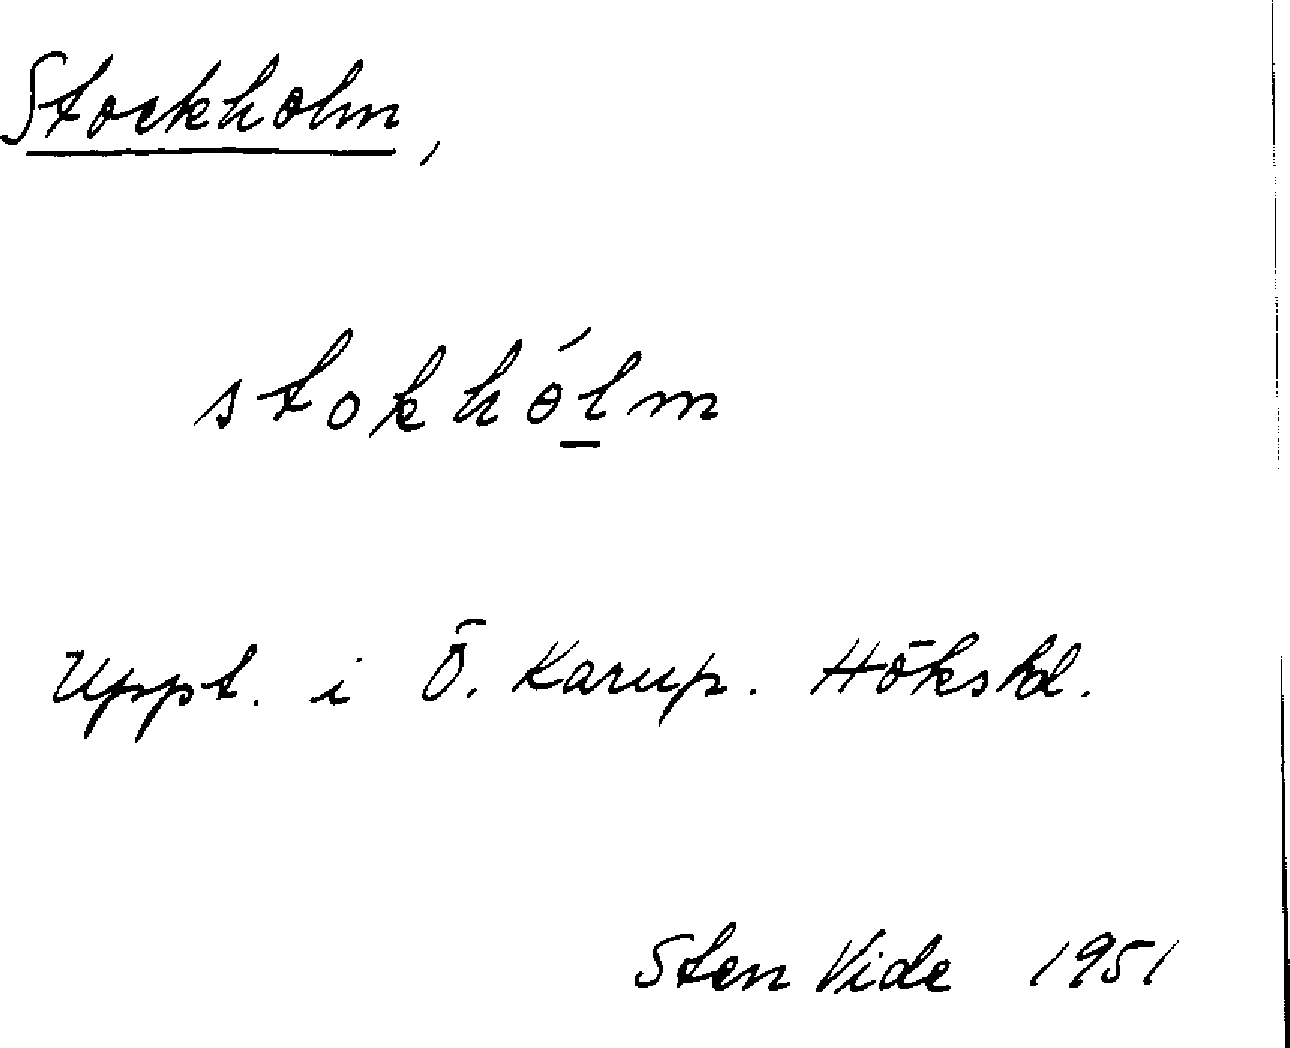 Stockholm,
stokhól̲m
Uppt. i Ö. Karup. Hökshd.
Sten Vide 1951